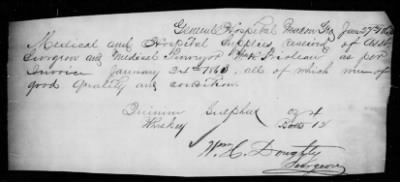 General Hospital Macon Ga Jan 27th 186
Medical and Hospital Supplies received of Asst
Surgeon and Medical Purveyor W. H. Prioleau as per
Invoice January 24th 1863, all of which were of
good quality and condition.
Quinine Sulphas oz 4
Whiskey Botts 12
Wm. C. Doughty
Surgeon